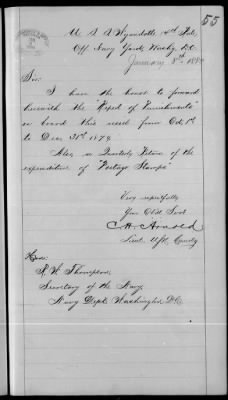 55
U. S. S. Wyandotte 4th Rate,
Off Navy Yard, Washg. D.C.
January 8th 1880
Sir:
I have the honor to forward
herewith the "Report of Punishments"
on board this vessel from Oct. 1st
to Dec. 31st 1879.
Also, a Quarterly Return of the
expenditure of "Postage Stamps"
Very respectfully
Your Obdt Servt
Lieut. U.S.N. Comdg
Hon.
R. W. Thompson,
Secretary of the Navy,
Navy Dept. Washington D.C.